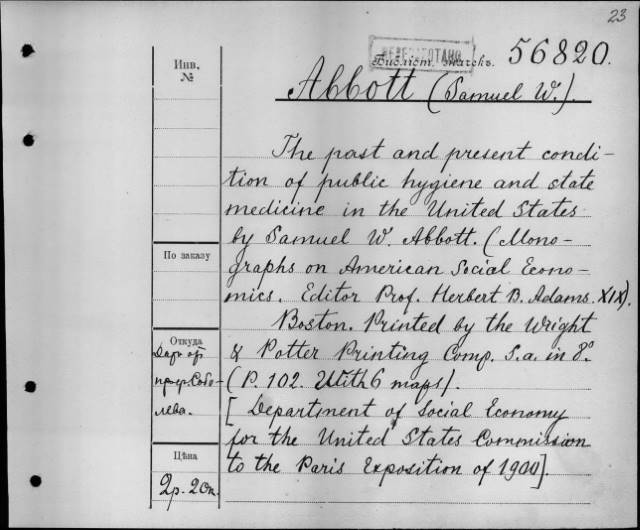 23
ПЕРЕРАБОТАНО
Библіот. значекъ. 56820.
Инв.
№
Abbott (Samuel W.).
The past and present condi-
tion of public hygiene and state
medicine in the United States
by Samuel W. Abbott. (Mono-
По заказу
graphs on American Social Econo-
mics. Editor Prof. Herbert B. Adams. XIX).
Boston. Printed by the Wright
Откуда
Даръ отъ
проф. Собо-
лева.
& Potter Printing Comp. S.a. in 8.°
(P. 102. With 6 maps).
[Department of Social Economy
for the United States Commission
to the Paris Exposition of 1900].
Цѣна
2р. 20к.